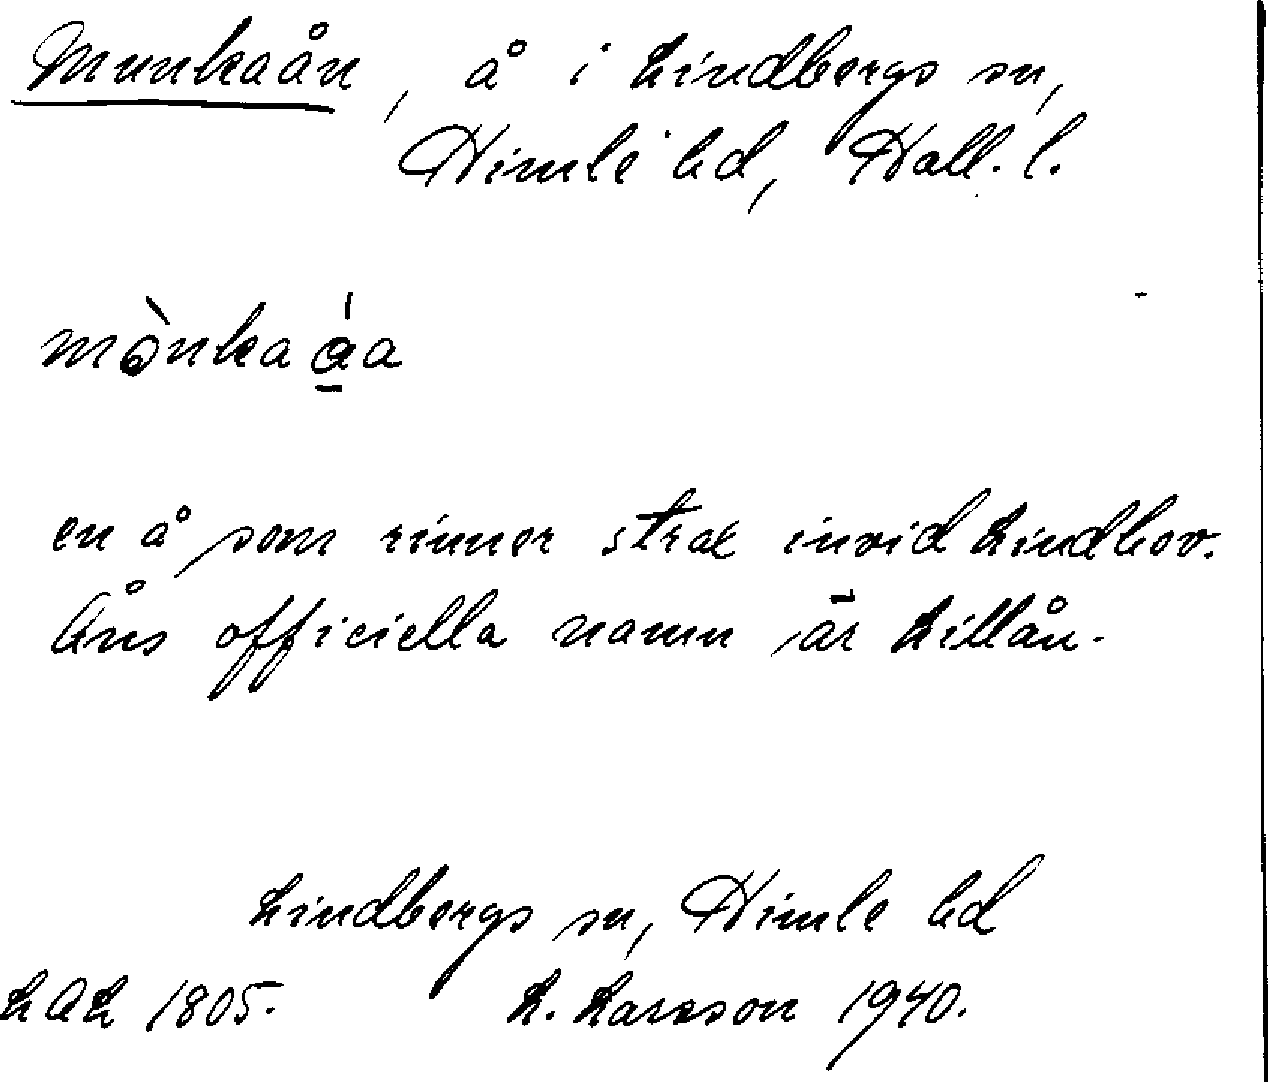 Munkaån, å i Lindbergs sn,
Himle hd, Hall. l.
mònka åa
en å som rinner strax invid Lindhov.
Åns officiella namn är Lillån.
Lindbergs sn, Himle hd
LAL 1805. L. Larsson 1940.